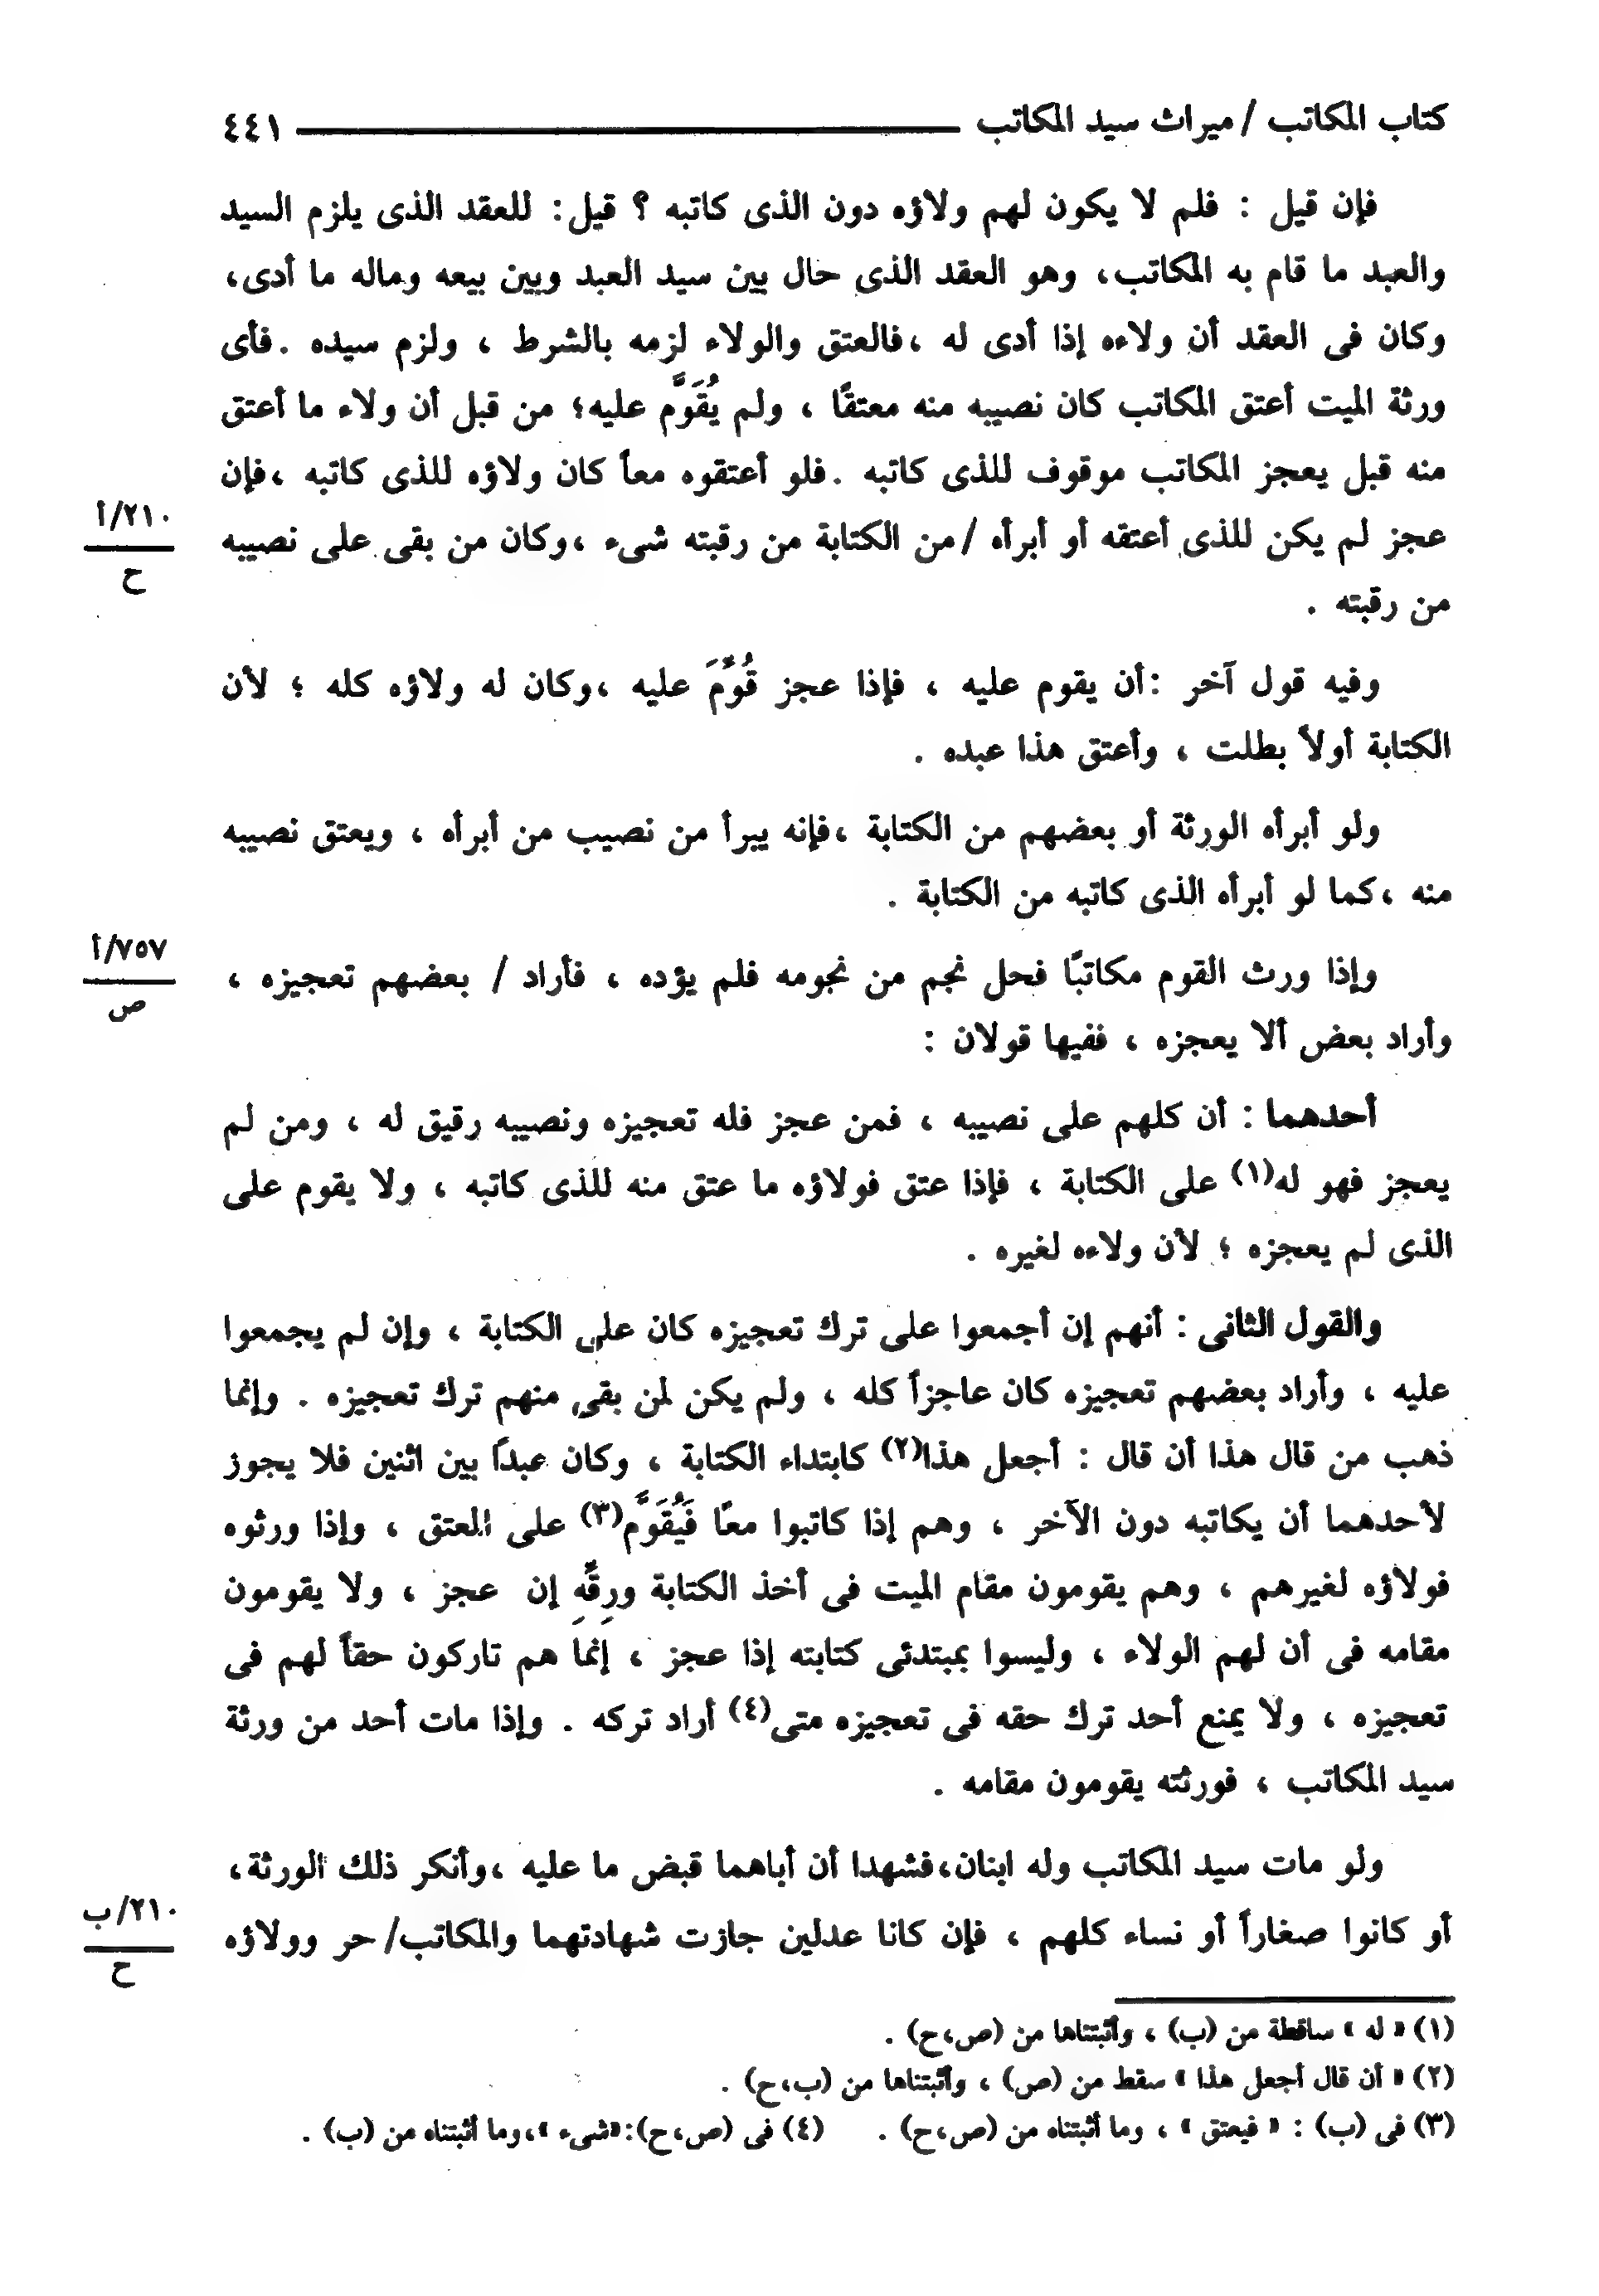 كتاب المكاتب / ميراث سيد المكاتب ٤٤١
فإن قيل : فلم لا يكون لهم ولاؤه دون الذى كاتبه ؟ قيل : للعقد الذى يلزم السيد
والعبد ما قام به المكاتب، وهو العقد الذى حال بين سيد العبد وبين بيعه وماله ما أدى،
وكان فى العقد أن ولاءه إذا أدى له ،فالعتق والولاء لزمه بالشرط ، ولزم سيده .فأى
ورثة الميت أعتق المكاتب كان نصيبه منه معتقًا ، ولم يُقَوَّم عليه؛ من قبل أن ولاء ما أعتق
منه قبل يعجز المكاتب موقوف للذى كاتبه .فلو أعتقوه معاً كان ولاؤه للذى كاتبه ،فإن
عجز لم يكن للذى أعتقه أو أبرأه /من الكتابة من رقبته شىء ،وكان من بقى على نصيبه
٢١٠/أ
ح
من رقبته .
وفيه قول آخر :أن يقوم عليه ، فإذا عجز قُوِّمَ عليه ،وكان له ولاؤه كله ؛ لأن
الكتابة أولاً بطلت ، وأعتق هذا عبده .
ولو أبرأه الورثة أو بعضهم من الكتابة ،فإنه يبرأ من نصيب من أبرأه ، ويعتق نصيبه
منه ،كما لو أبرأه الذى كاتبه من الكتابة .
وإذا ورث القوم مكاتبًا فحل نجم من نجومه فلم يؤده ، فأراد / بعضهم تعجيزه ،
٧٥٧/أ
ص
وأراد بعض ألا يعجزه ، ففيها قولان :
أحدهما : أن كلهم على نصيبه ، فمن عجز فله تعجيزه ونصيبه رقيق له ، ومن لم
يعجز فهو له(١) على الكتابة ، فإذا عتق فولاؤه ما عتق منه للذى كاتبه ، ولا يقوم على
الذى لم يعجزه ؛ لأن ولاءه لغيره .
والقول الثانى : أنهم إن أجمعوا على ترك تعجيزه كان على الكتابة ، وإن لم يجمعوا
عليه ، وأراد بعضهم تعجيزه كان عاجزاً كله ، ولم يكن لمن بقى منهم ترك تعجيزه . وإنما
ذهب من قال هذا أن قال : أجعل هذا(٢) كابتداء الكتابة ، وكان عبداً بين اثنين فلا يجوز
لأحدهما أن يكاتبه دون الآخر ، وهم إذا كاتبوا معًا فَيُقَوَّم(٣) على المعتق ، وإذا ورثوه
فولاؤه لغيرهم ، وهم يقومون مقام الميت فى أخذ الكتابة ورِقِّهِ إن عجز ، ولا يقومون
مقامه فى أن لهم الولاء ، وليسوا بمبتدئى كتابته إذا عجز ، إنما هم تاركون حقاً لهم فى
تعجيزه ، ولا يمنع أحد ترك حقه فى تعجيزه متى(٤) أراد تركه . وإذا مات أحد من ورثة
سيد المكاتب ، فورثته يقومون مقامه .
ولو مات سيد المكاتب وله ابنان،فشهدا أن أباهما قبض ما عليه ،وأنكر ذلك الورثة،
أو كانوا صغاراً أو نساء كلهم ، فإن كانا عدلين جازت شهادتهما والمكاتب/ حر وولاؤه
٢١٠/ب
ح
(١) « له » ساقطة من (ب) ، وأثبتناها من (ص،ح) .
(٢) « أن قال أجعل هذا » سقط من (ص) ، وأثبتناها من (ب،ح) .
(٣) فى (ب) : « فيعتق » ، وما أثبتناه من (ص،ح) . (٤) فى (ص،ح):«شىء »،وما أثبتناه من (ب) .